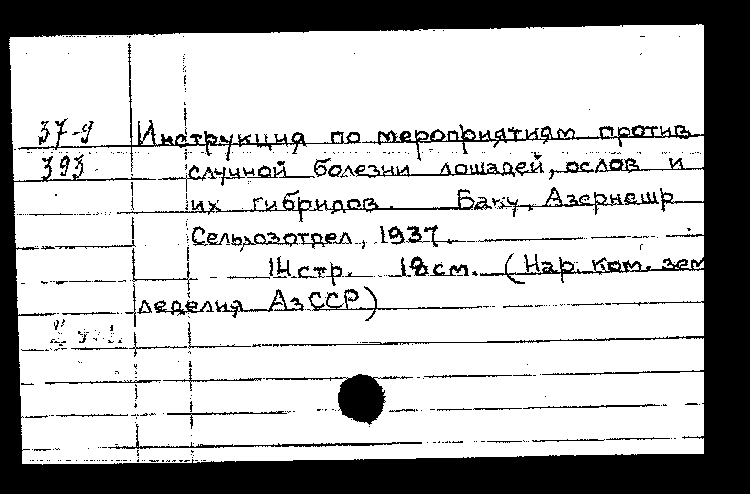 37-9 Инструкция по мероприятиям против
393 случной болезни лошадей, ослов и
их гибридов. Баку, Азернешр
Сельхозотдел, 1937.
14 стр. 18 см. (Нар. ком. зем
леделия АзССР.)